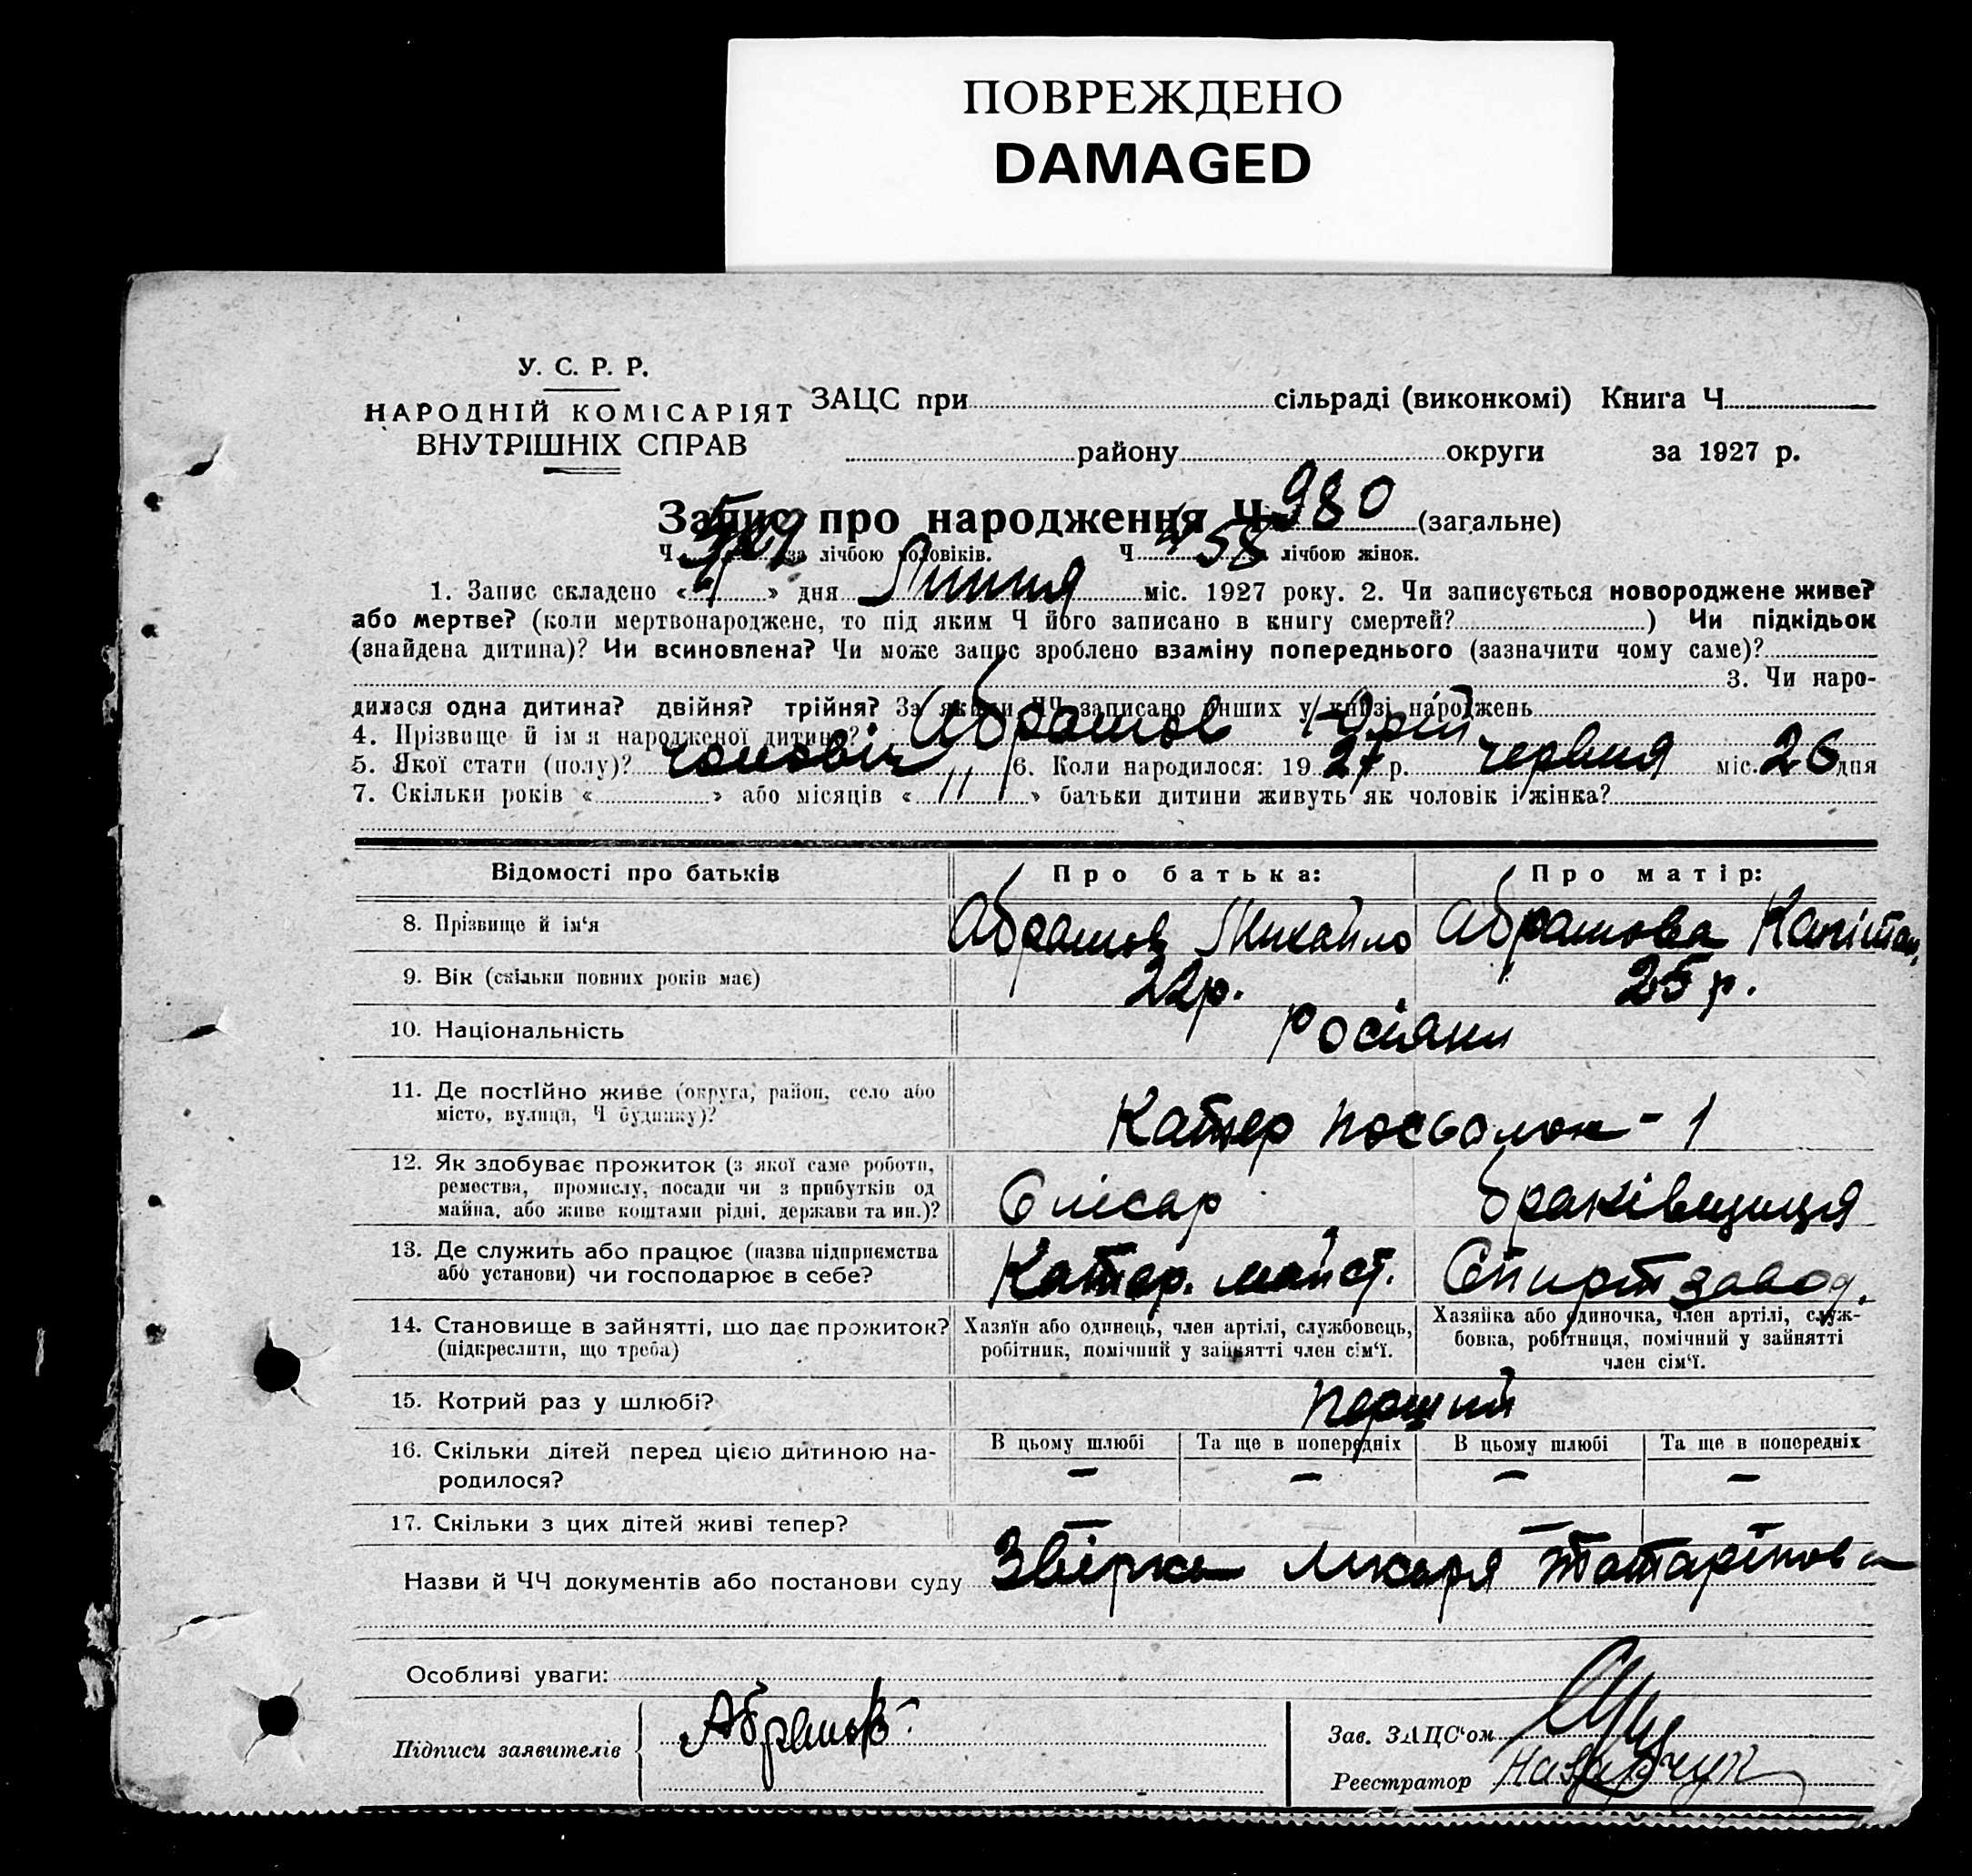 ПОВРЕЖДЕНО
DAMAGED
У. С. Р. Р.
НАРОДНІЙ КОМІСАРІЯТ
ВНУТРІШНІХ СПРАВ
ЗАЦС при сільраді (виконкомі) Книга Ч
району округи за 1927 р.
Запис про народження Ч 980 (загальне)
Ч за лічбою чоловіків. Ч 458 лічбою жінок.
1. Запис складено « » дня Липня міс. 1927 року. 2. Чи записується новороджене живе?
або мертве? (коли мертвонароджене, то під яким Ч його записано в книгу смертей? ) Чи підкідьок
(знайдена дитина)? Чи всиновлена? Чи може запис зроблено взаміну попереднього (зазначити чому саме)?
3. Чи наро-
дилася одна дитина? двійня? трійня? За якими ЧЧ записано інших у книзі народжень
4. Прізвище й ім'я народженої дитини? Абрамов Юрій
5. Якої стати (полу)? чоловіч 6. Коли народилося: 1927 р. червня міс. 26 дня
7. Скільки років « » або місяців « 11 » батьки дитини живуть як чоловік і жінка?
Відомості про батьків Про батька: Про матір:
8. Прізвище й ім'я Абрамов Михайло Абрамова Капітал.
9. Вік (скільки повних років має) 22р. 25р.
10. Національність Росіяни
11. Де постійно живе (округа, район, село або
місто, вулиця, Ч будинку)? Катер посьолок - 1
12. Як здобуває прожиток (з якої саме роботи,
ремества, промислу, посади чи з прибутків од
майна, або живе коштами рідні, держави та ин.)? Слісар браківщиця
13. Де служить або працює (назва підприємства
або установи) чи господарює в себе? Катер. майст. Спирт завод.
14. Становище в зайнятті, що дає прожиток?
(підкреслити, що треба)
Хазяїн або одинець, член артілі, службовець,
робітник, помічний у зайнятті член сім'ї.
Хазяйка або одиночка, член артілі, служ-
бовка, робітниця, помічний у зайнятті
член сім'ї.
15. Котрий раз у шлюбі? перший
16. Скільки дітей перед цією дитиною на-
родилося?
В цьому шлюбі Та ще в попередніх В цьому шлюбі Та ще в попередніх
— — — —
17. Скільки з цих дітей живі тепер? — —
Назви й ЧЧ документів або постанови суду Звірка лікаря Татарінова
Особливі уваги:
Підписи заявителів Абрамов
Зав. ЗАЦС'ом
Реєстратор Назарчук